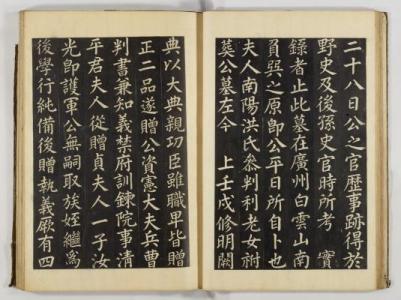 二十八日公之官歷事跡得於
野史及後孫史官時所考 實
錄者止此墓在廣州白雲山南
負巽之原即公平日所自卜也
夫人南陽洪氏叅判利老女祔
葬公墓左今 上壬戌修明闕
典以大典親功臣雖職卑皆贈
正二品遂贈公資憲大夫兵曹
判書兼知義禁府訓鍊院事清
平君夫人從贈貞夫人一子汝
光卽護軍公無嗣取族姪繼爲
後學行純備後贈執義厥有四